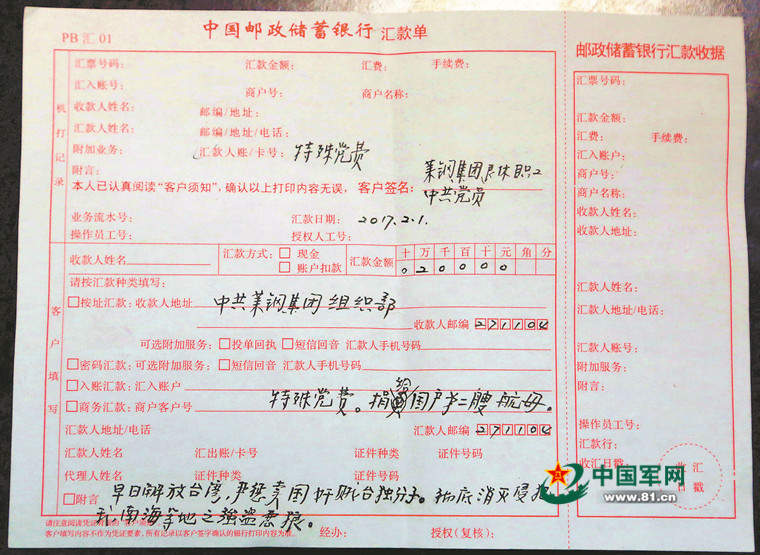 PB汇01 中国邮政储蓄银行 汇款单
汇票号码： 汇款金额： 汇费： 手续费：
汇入账号： 商户号： 商户名称：
收款人姓名： 邮编/地址：
汇款人姓名： 邮编/地址/电话：
附加业务： 汇款人账/卡号： 特殊党费
附言： 莱钢集团退休职工
本人已认真阅读“客户须知”，确认以上打印内容无误， 客户签名： 中共党员
业务流水号： 汇款日期： 2017.2.1.
操作员工号： 授权人工号：
机打记录
收款人姓名 汇款方式： 现金 账户扣款 汇款金额 十万千百十元角分
020000
请按汇款种类填写：
按址汇款：收款人地址 中共莱钢集团组织部
收款人邮编 271104
可选附加服务： 投单回执 短信回音 汇款人手机号码
密码汇款：可选附加服务： 短信回音 汇款人手机号码
入账汇款：汇入账户
商务汇款：商户客户号 特殊党费。捐给国产第二艘航母。
汇款人地址/电话 汇款人邮编 271104
汇款人姓名 汇出账/卡号 证件种类 证件号码
代理人姓名 证件种类 证件号码
附言 早日解放台湾，严惩卖国奸贼台独分子。彻底消灭侵扰
我南海等地之强盗恶狼。
客户填写
客户填写内容不作为凭证要素，所有记录以客户签字确认的银行打印内容为准。 经办： 授权（复核）：
邮政储蓄银行汇款收据
汇票号码：
汇款金额：
汇费： 手续费：
汇入账户：
商户号：
商户名称：
收款人姓名：
收款人地址：
汇款人姓名：
汇款人地址/电话：
汇款人账号：
附加服务：
附言：
操作员工号：
汇款行：
收汇日戳：
收汇
日戳
中国军网
www.81.cn